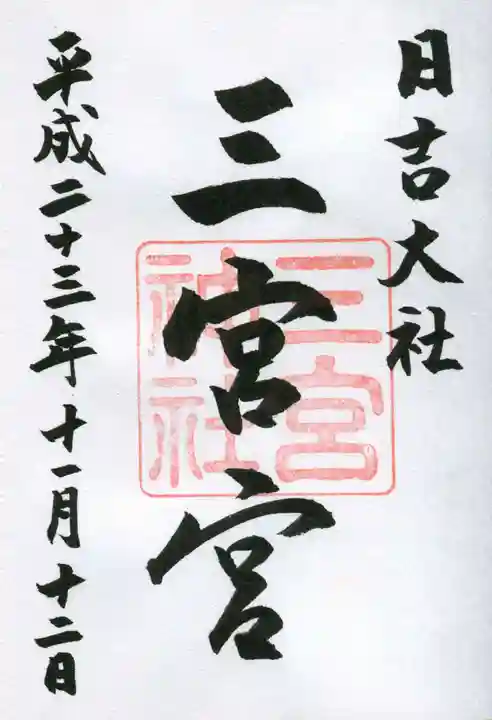 日吉大社
三宮宮
三宮
神社
平成二十三年十一月十二日